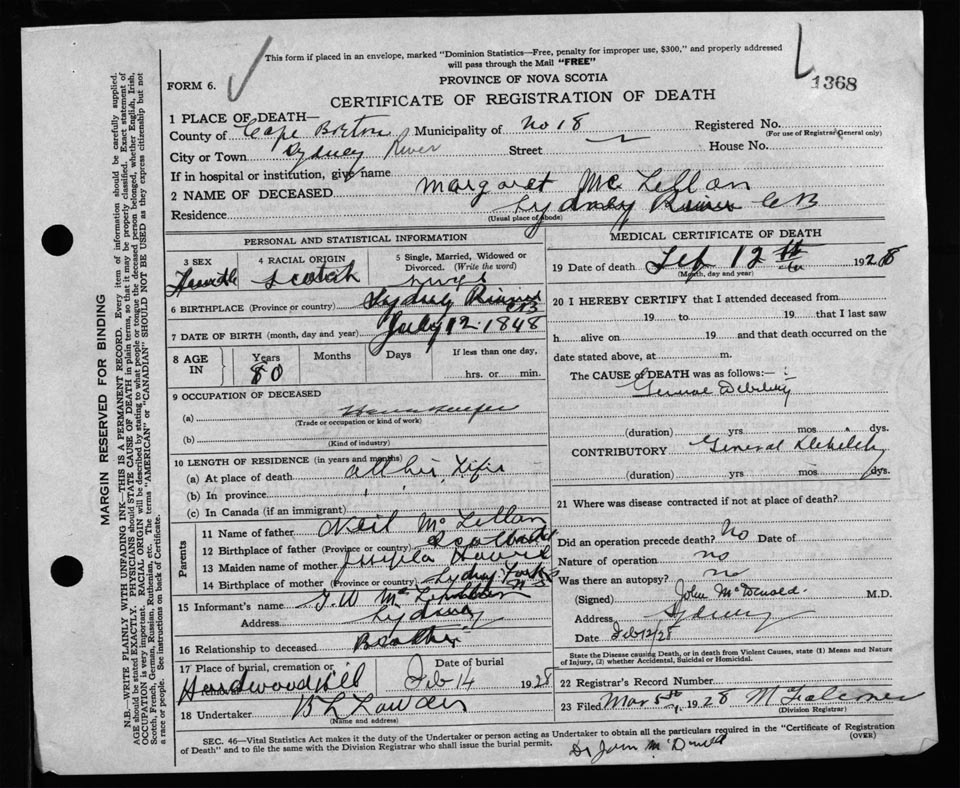 This form if placed in an envelope, marked "Dominion Statistics—Free, penalty for improper use, $300," and properly addressed
will pass through the Mail "FREE"
FORM 6.
PROVINCE OF NOVA SCOTIA
1368
CERTIFICATE OF REGISTRATION OF DEATH
1 PLACE OF DEATH—
County of Cape Breton Municipality of No 18 Registered No.
(For use of Registrar General only)
City or Town Sydney River Street House No.
If in hospital or institution, give name
2 NAME OF DECEASED Margaret Mc Lellan
Residence Sydney River CB
(Usual place of abode)
PERSONAL AND STATISTICAL INFORMATION
3 SEX 4 RACIAL ORIGIN 5 Single, Married, Widowed or
Divorced. (Write the word)
Female Scotch
6 BIRTHPLACE (Province or Country) Sydney River CB
7 DATE OF BIRTH (month, day and year) July 12. 1848
8 AGE IN Years Months Days If less than one day,
80 hrs. or min.
9 OCCUPATION OF DECEASED
(a) Housekeeper
(Trade or occupation or kind of work)
(b)
(Kind of industry)
10 LENGTH OF RESIDENCE (in years and months)
(a) At place of death all her Life
(b) In province
(c) In Canada (if an immigrant)
Parents
11 Name of father Neil McLellan
12 Birthplace of father (Province or country) Scotland
13 Maiden name of mother
14 Birthplace of mother (Province or country) Sydney Forks NS
15 Informant's name
Address Sydney
16 Relationship to deceased Brother
17 Place of burial, cremation or removal Date of burial
Hardwood Hill Feb 14 1928
18 Undertaker
(Name and address)
MEDICAL CERTIFICATE OF DEATH
19 Date of death Feb 12th 1928
(Month, day and year)
20 I HEREBY CERTIFY that I attended deceased from
19 to 19 that I last saw
h alive on 19 and that death occurred on the
date stated above, at m.
The CAUSE of DEATH was as follows:—
General Debility
(duration) yrs. mos. dys.
CONTRIBUTORY General Debility
(duration) yrs mos dys.
21 Where was disease contracted if not at place of death?
Did an operation precede death? No Date of
Nature of operation no
Was there an autopsy? no
(Signed) John McDonald. M.D.
Address Sydney
Date Feb 12/28
State the Disease causing Death, or in death from Violent Causes, state (1) Means and Nature
of Injury, (2) whether Accidental, Suicidal or Homicidal.
22 Registrar's Record Number
23 Filed Mar 5th 1928 M Falconer
(Division Registrar)
SEC. 46—Vital Statistics Act makes it the duty of the Undertaker or person acting as Undertaker to obtain all the particulars required in the "Certificate of Registration
of Death" and to file the same with the Division Registrar who shall issue the burial permit. (OVER)
Dr John McDonald
MARGIN RESERVED FOR BINDING
N.B.—WRITE PLAINLY WITH UNFADING INK—THIS IS A PERMANENT RECORD. Every item of information should be carefully supplied.
AGE should be stated EXACTLY. PHYSICIANS should STATE CAUSE OF DEATH in plain terms, so that it may be properly classified. Exact statement of
OCCUPATION is very important. RACIAL ORIGIN will be described by stating to what people or tongue the deceased person belonged, whether English, Irish,
Scotch, French, German, Russian, Ruthenian, etc. The terms "AMERICAN" or "CANADIAN" SHOULD NOT BE USED as they express citizenship but not
a race or people. See instructions on back of Certificate.